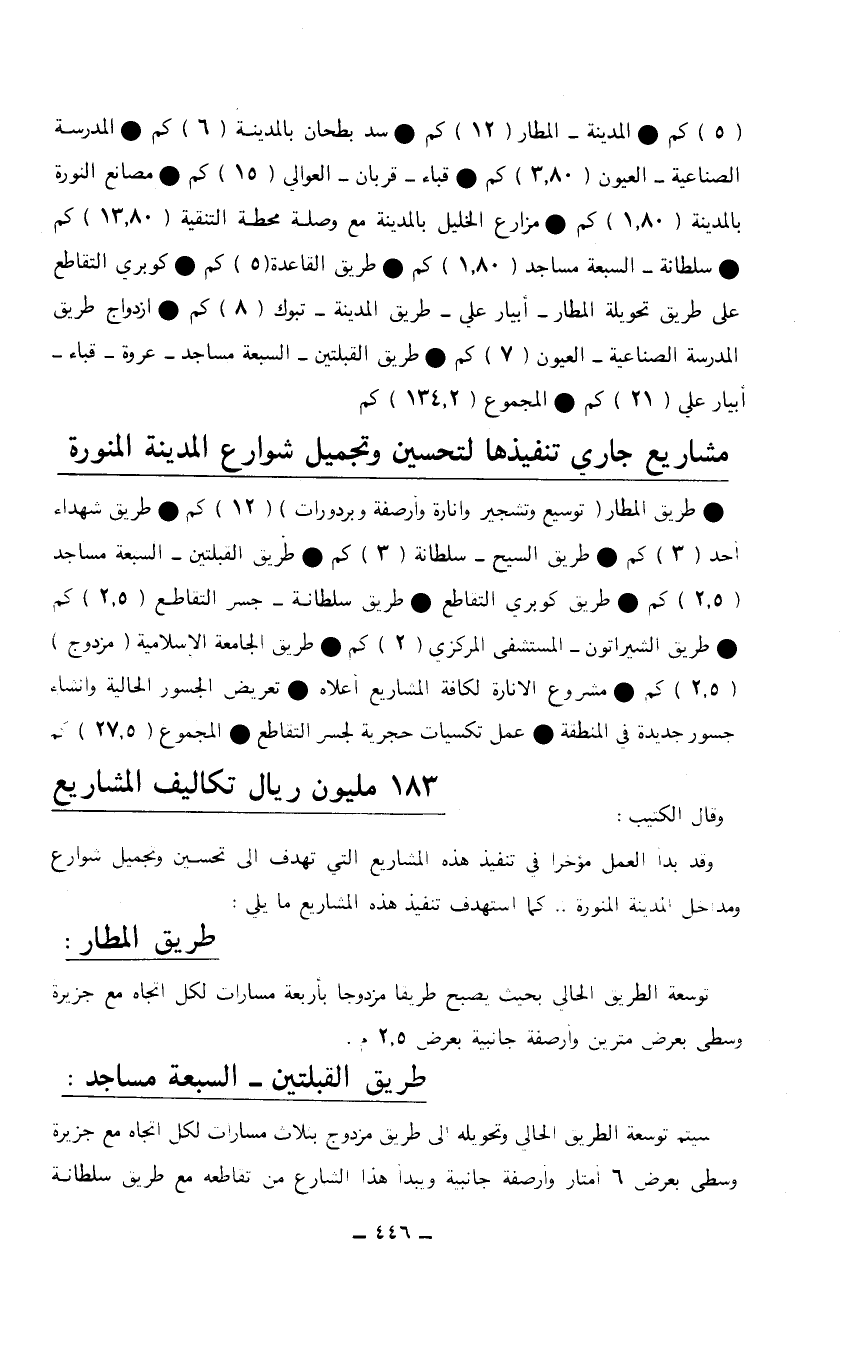 ( ٥ ) كم ● المدينة ـ المطار ( ١٢ ) كم ● سد بطحان بالمدينـة ( ٦ ) كم ● المدرسـة
الصناعية ـ العيون ( ٣,٨٠ ) كم ● قباء ـ قربان ـ العوالي ( ١٥ ) كم ● مصانع النورة
بالمدينة ( ١,٨٠ ) كم ● مزارع الخليل بالمدينة مع وصلـة محطـة التنقية ( ١٣,٨٠ ) كم
● سلطانة ـ السبعة مساجد ( ١,٨٠ ) كم ● طريق القاعدة(٥ ) كم ● كوبري التقاطع
على طريق تحويلة المطار ـ أبيار علي ـ طريق المدينة ـ تبوك ( ٨ ) كم ● ازدواج طريق
المدرسة الصناعية ـ العيون ( ٧ ) كم ● طريق القبلتين ـ السبعة مساجد ـ عروة ـ قباء ـ
أبيار علي ( ٢١ ) كم ● المجموع ( ١٣٤,٢ ) كم
مشاريع جاري تنفيذها لتحسين وتجميل شوارع المدينة المنورة
● طريق المطار( توسيع وتشجير وانارة وأرصفة وبردورات ) ( ١٢ ) كم ● طريق شهداء
أحد ( ٣ ) كم ● طريق السيح ـ سلطانة ( ٣ ) كم ● طريق القبلتين ـ السبعة مساجد
( ٢,٥ ) كم ● طريق كوبري التقاطع ● طريق سلطانـة ـ جسر التقاطـع ( ٢,٥ ) كم
● طريق الشيراتون ـ المستشفى المركزي ( ٢ ) كم ● طريق الجامعة الإسلامية ( مزدوج )
( ٢,٥ ) كم ● مشروع الانارة لكافة المشاريع أعلاه ● تعريض الجسور الحالية وانشاء
جسور جديدة في المنطقة ● عمل تكسيات حجرية لجسر التقاطع ● المجموع ( ٢٧,٥ ) كم
١٨٣ مليون ريال تكاليف المشاريع
وقال الكتيب :
وقد بدأ العمل مؤخرا في تنفيذ هذه المشاريع التي تهدف الى تحسـين وتجميل شوارع
ومداخل المدينة المنورة .. كما استهدف تنفيذ هذه المشاريع ما يلي :
طريق المطار :
توسعة الطريق الحالي بحيث يصبح طريقا مزدوجا بأربعة مسارات لكل اتجاه مع جزيرة
وسطى بعرض مترين وأرصفة جانبية بعرض ٢,٥ م .
طريق القبلتين ـ السبعة مساجد :
سيتم توسعة الطريق الحالي وتحويله الى طريق مزدوج بثلاث مسارات لكل اتجاه مع جزيرة
وسطى بعرض ٦ أمتار وأرصفة جانبية ويبدأ هذا الشارع من تقاطعه مع طريق سلطانـة
ـ ٤٤٦ ـ